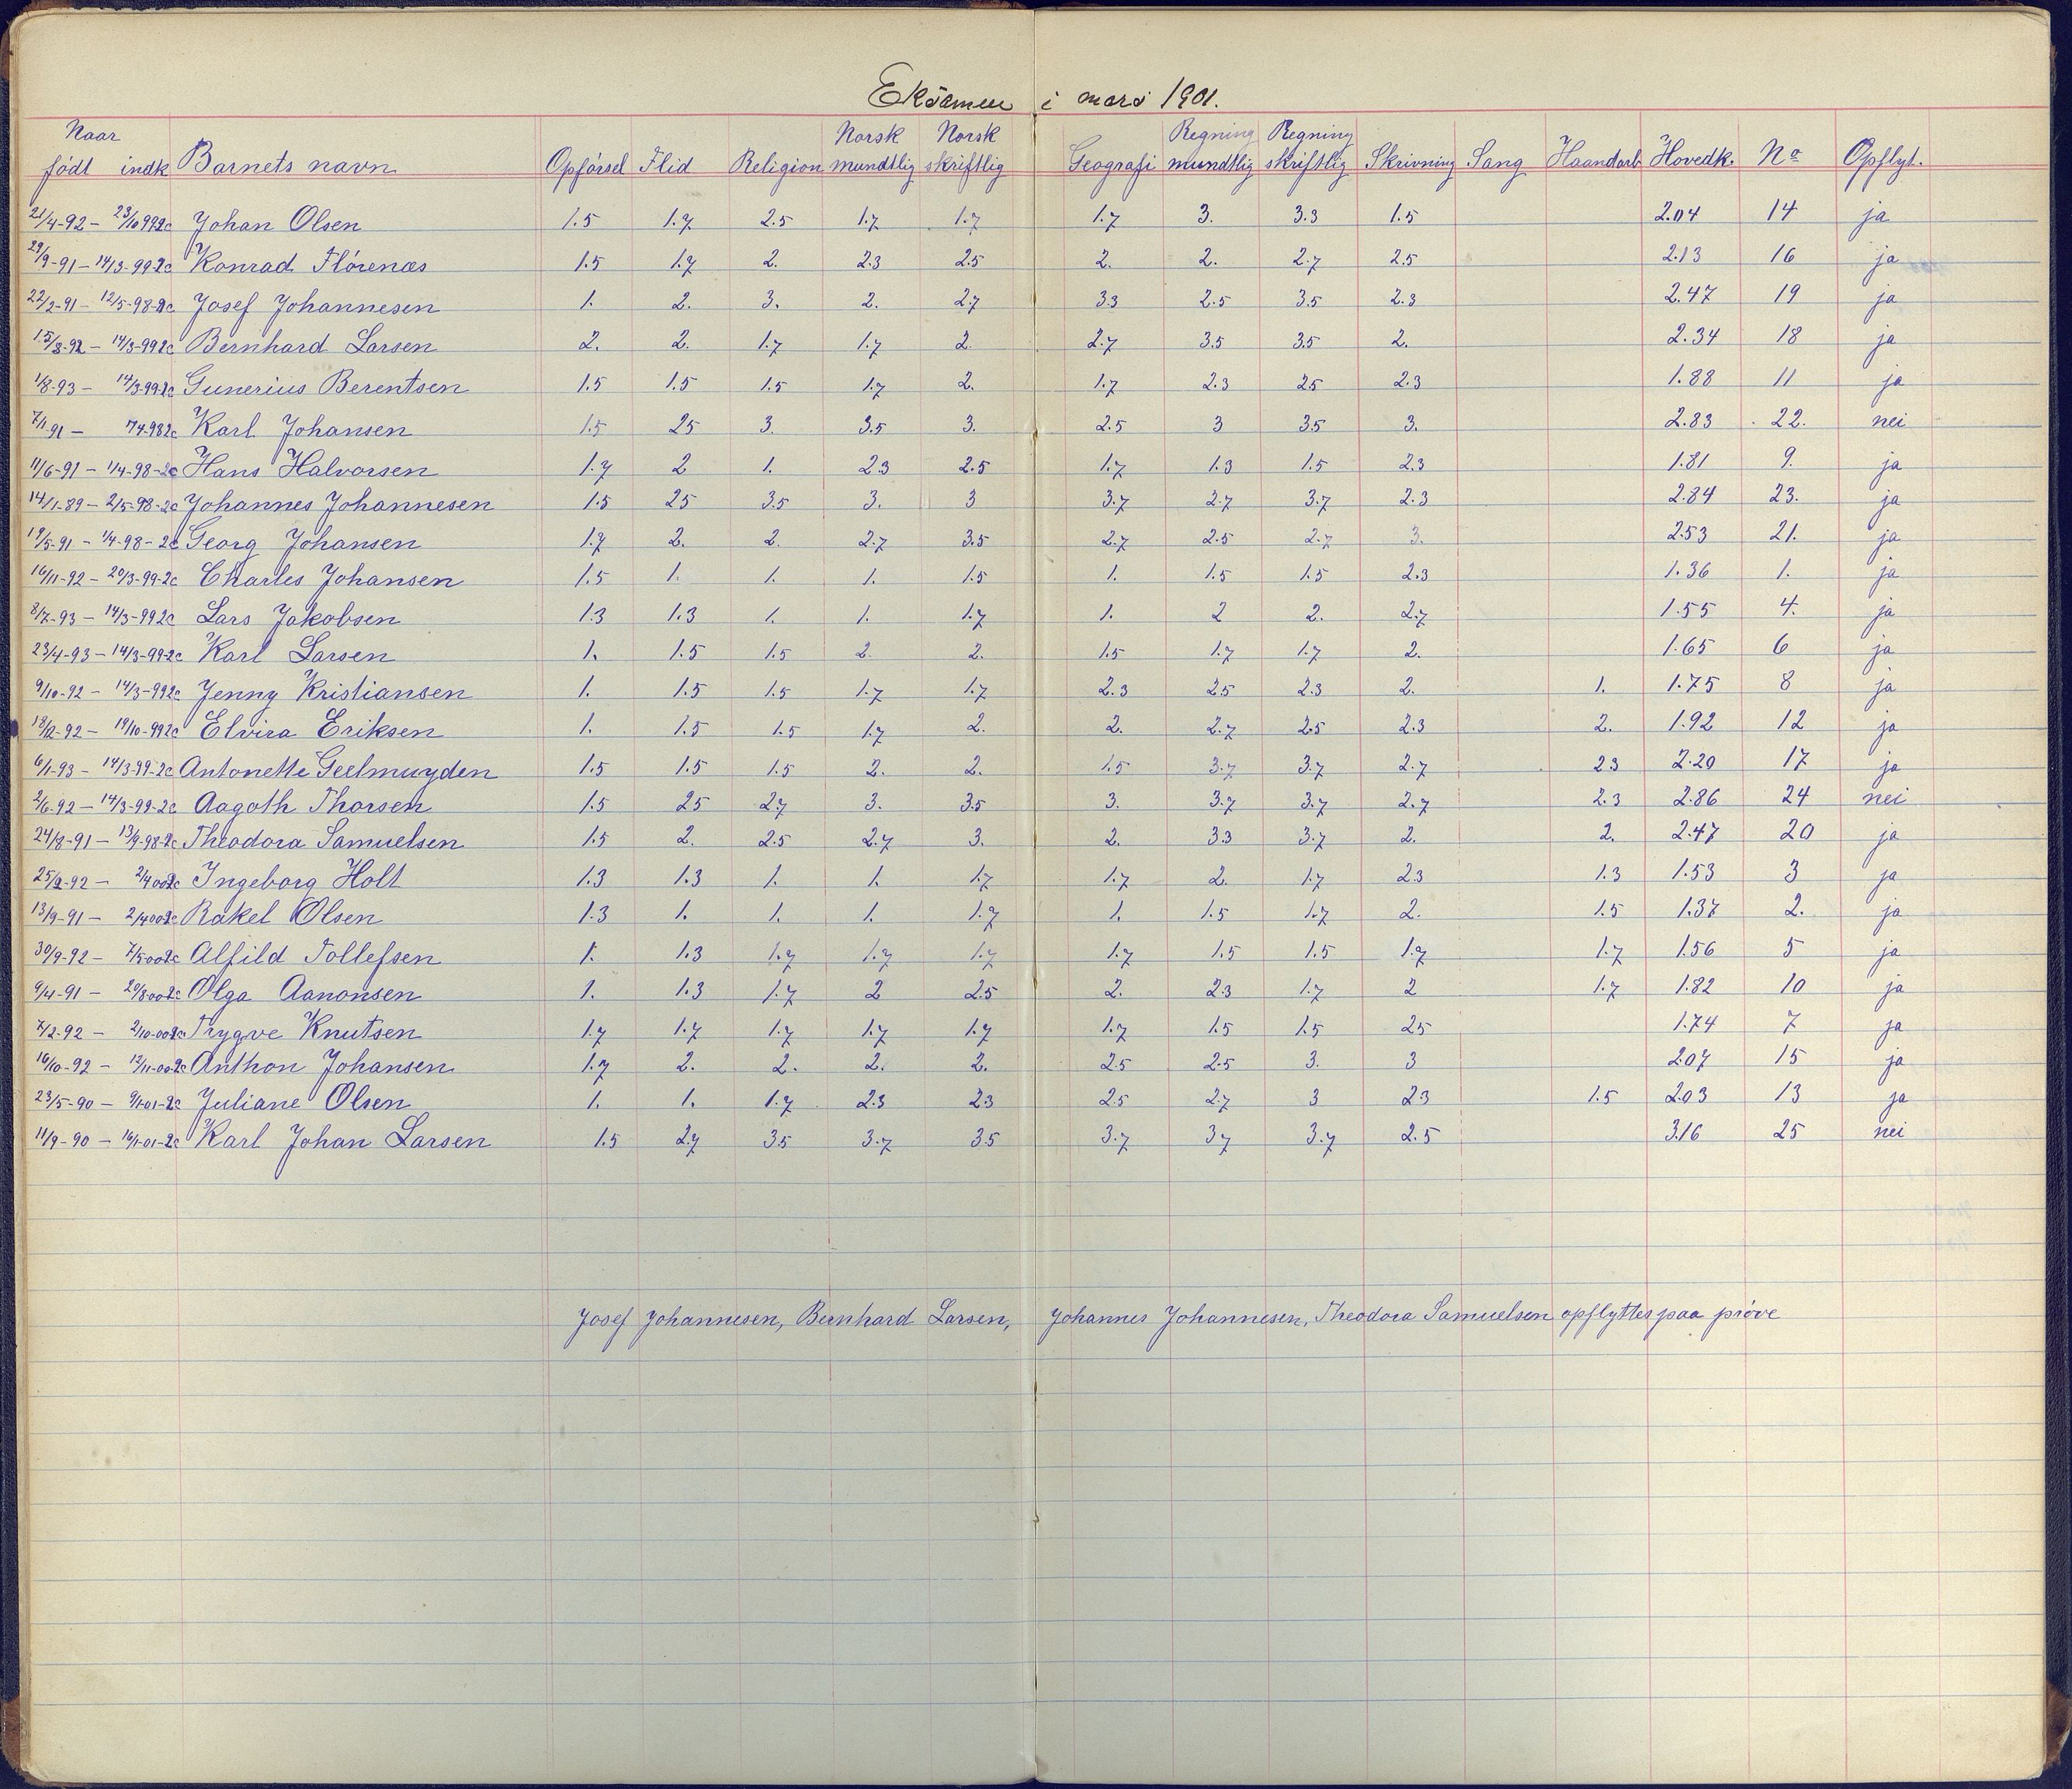 Eksamen i mars 1901.
Naar Norsk Norsk Regning Regning
født indk Barnets navn Opførsel Flid Religion mundtlig skriftlig Geografi mundtlig skriftlig Skrivning Sang Haandarb Hovedk. No Opflyt.
21/4-92 - 23/10 99 2c Johan Olsen 1.5 1.7 2.5 1.7 1.7 1.7 3. 3.3 1.5 2.04 14 ja
29/9-91 - 14/3-99 2c Konrad Flørenæs 1.5 1.7 2. 2.3 2.5 2. 2. 2.7 2.5 2.13 16 ja
22/2-91 - 12/5-98-2c Josef Johannesen 1. 2. 3. 2. 2.7 3.3 2.5 3.5 2.3 2.47 19 ja
15/8-92 - 14/3-99 2c Bernhard Larsen 2. 2. 1.7 1.7 2. 2.7 3.5 3.5 2. 2.34 18 ja
1/8-93 - 14/3-99 2c Gunerius Berentsen 1.5 1.5 1.5 1.7 2. 1.7 2.3 2.5 2.3 1.88 11 ja
7/1-91 - 7/4-98 2c Karl Johansen 1.5 25 3. 3.5 3. 2.5 3 3.5 3. 2.83 22. nei
11/6-91 - 1/4-98-2c Hans Halvorsen 1.7 2 1. 2.3 2.5 1.7 1.3 1.5 2.3 1.81 9. ja
14/11-89 - 2/5-98-2c Johannes Johannesen 1.5 25 3.5 3. 3 3.7 2.7 3.7 2.3 2.84 23. ja
19/5-91 - 1/4-98-2c Georg Johansen 1.7 2. 2. 2.7 3.5 2.7 2.5 2.7 3. 2.53 21. ja
16/11-92 - 20/3-99-2c Charles Johansen 1.5 1. 1. 1. 1.5 1. 1.5 1.5 2.3 1.36 1. ja
8/7-93 - 14/3-99 2c Lars Jakobsen 1.3 1.3 1. 1. 1.7 1. 2 2. 2.7 1.55 4. ja
23/4-93 - 14/3-99-2c Karl Larsen 1. 1.5 1.5 2. 2. 1.5 1.7 1.7 2. 1.65 6 ja
9/10-92 - 14/3-99 2c Jenny Kristiansen 1. 1.5 1.5 1.7 1.7 2.3 2.5 2.3 2. 1. 1.75 8 ja
18/12-92 - 19/10-99 2c Elvira Eriksen 1. 1.5 1.5 1.7 2. 2. 2.7 2.5 2.3 2. 1.92 12 ja
6/1-93 - 14/3-99-2c Antonette Geelmuyden 1.5 1.5 1.5 2. 2. 1.5 3.7 3.7 2.7 2.3 2.20 17 ja
2/6-92 - 14/3-99-2c Aagoth Thorsen 1.5 25 2.7 3. 3.5 3. 3.7 3.7 2.7 2.3 2.86 24 nei
24/8-91 - 13/9-98-2c Theodora Samuelsen 1.5 2. 2.5 2.7 3. 2. 3.3 3.7 2. 2. 2.47 20 ja
25/2-92 - 2/4 00 2c Ingeborg Holt 1.3 1.3 1. 1. 1.7 1.7 2. 1.7 2.3 1.3 1.53 3 ja
13/9-91 - 2/4 00 2c Rakel Olsen 1.3 1. 1. 1. 1.7 1. 1.5 1.7 2. 1.5 1.37 2. ja
30/9-92 - 7/5 00 2c Alfild Tollefsen 1. 1.3 1.7 1.7 1.7 1.7 1.5 1.5 1.7 1.7 1.56 5 ja
9/4-91 - 20/8-00 2c Olga Aanonsen 1. 1.3 1.7 2 2.5 2. 2.3 1.7 2 1.7 1.82 10 ja
7/2-92 - 2/10-00 2c Trygve Knutsen 1.7 1.7 1.7 1.7 1.7 1.7 1.5 1.5 25 1.74 7 ja
16/10-92 - 12/11-00-2c Anthon Johansen 1.7 2. 2. 2. 2. 2.5 2.5 3. 3 2.07 15 ja
23/5-90 - 9/1-01-2c Juliane Olsen 1. 1. 1.7 2.3 2.3 2.5 2.7 3 2.3 1.5 2.03 13 ja
11/9-90 - 16/1-01-2c Karl Johan Larsen 1.5 2.7 3.5 3.7 3.5 3.7 3.7 3.7 2.5 3.16 25 nei
Josef Johannesen, Bernhard Larsen, Johannes Johannesen, Theodora Samuelsen opflyttes paa prøve